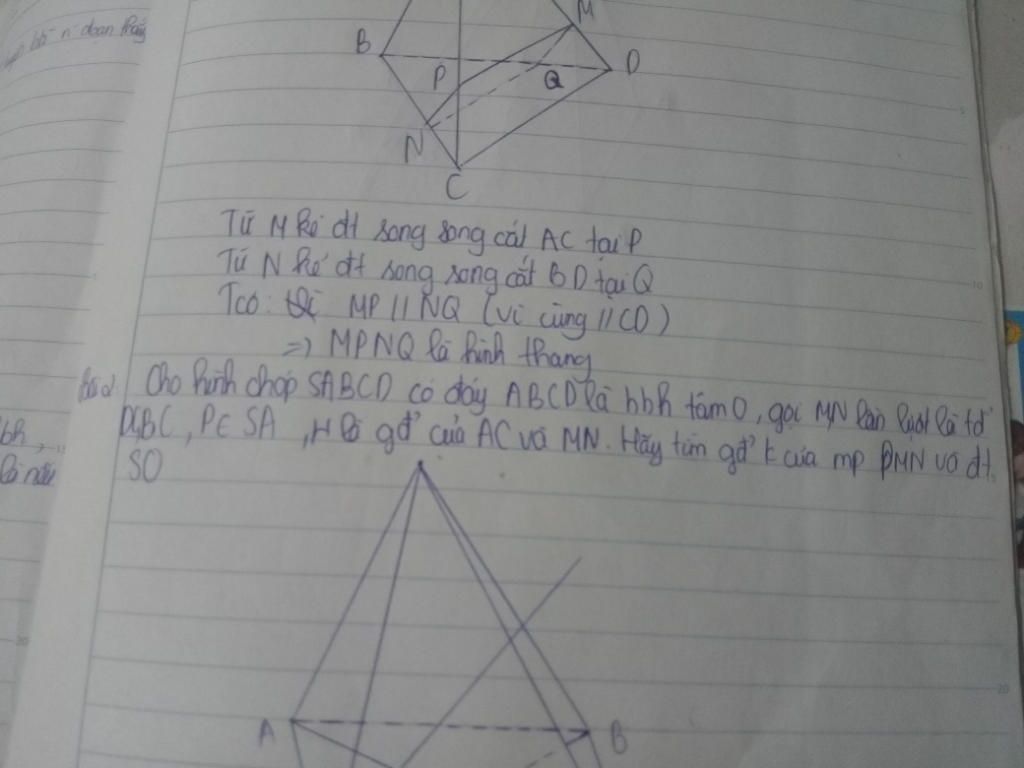 n đoạn thẳng
M
B
D
P
Q
N
C
Từ M kẻ đt song song cắt AC tại P
Từ N kẻ đt song song cắt BD tại Q
Tcó: MP // NQ (vì cùng // CD)
=> MPNQ là hình thang
Cho hình chóp SABCD có đáy ABCD là hbh tâm O, gọi M,N lần lượt là tđ
BC, P∈ SA, H là gđ' của AC và MN. Hãy tìm gđ' k của mp PMN và đt
SO
bh
là
A
B